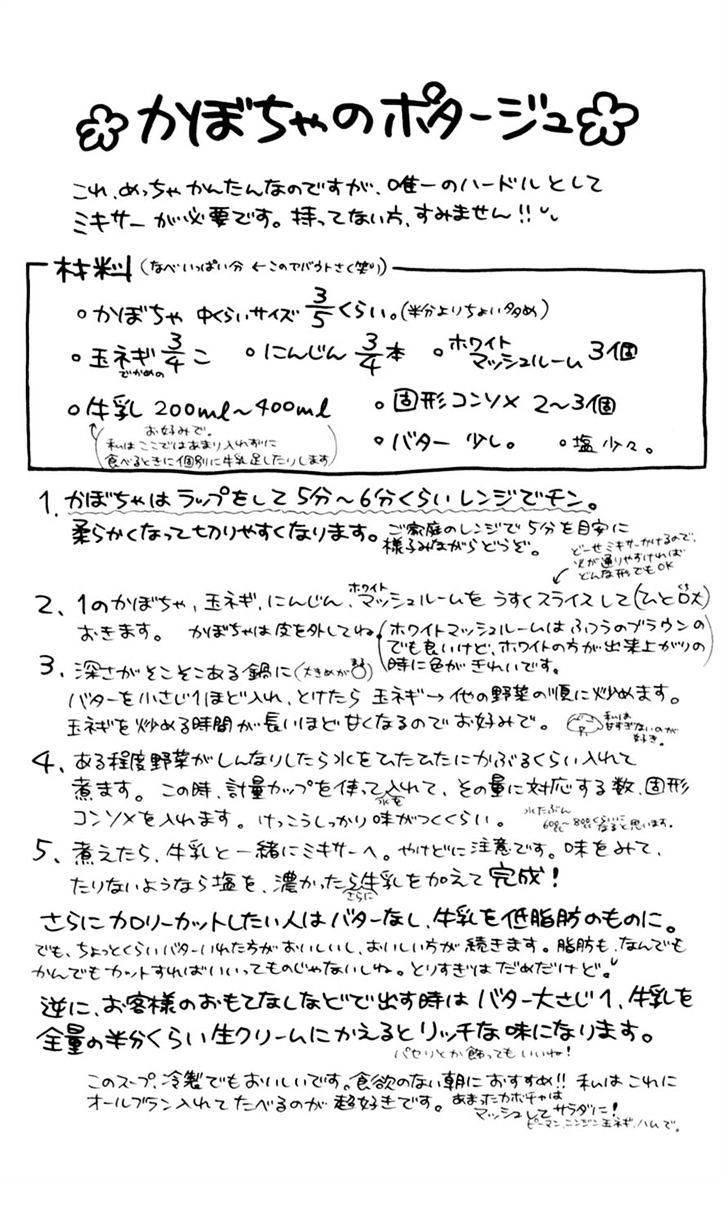 かぼちゃのポタージュ
これ、めっちゃかんたんなのですが、唯一のハードルとして
ミキサーが必要です。持ってない方、すみません!!
材料(なべいっぱい分 ←このでバウトさ(笑))
かぼちゃ 中くらいサイズ 3/5 くらい。(半分よりちょい多め)
玉ネギ 3/4 こ でかめの
にんじん 3/4 本
ホワイトマッシュルーム 3個
牛乳 200ml〜400ml
固形コンソメ 2〜3個
お好みで。
私はここではあまり入れずに
食べるときに個別に牛乳足したりします
バター 少し。
塩 少々。
1. かぼちゃはラップをして5分〜6分くらいレンジでチン。
柔らかくなって切りやすくなります。ご家庭のレンジで5分を目安に
様子みながらどうぞ。
どーせミキサーかけるので、
火が通りやすければ
どんな形でもOK
2、1のかぼちゃ、玉ネギ、にんじん、ホワイトマッシュルームをうすくスライスして(ひと口大)
おきます。 かぼちゃは皮を外してね
(ホワイトマッシュルームはふつうのブラウンの
でも良いけど、ホワイトの方が出来上がりの
時に色がきれいです。
3、深さがそこそこある鍋に(大きめが
バターを小さじ1ほど入れ、とけたら玉ネギ→他の野菜の順に炒めます。
玉ネギを炒める時間が長いほど甘くなるのでお好みで。
私は
甘すぎないのが
好き。
4、ある程度野菜がしんなりしたら水をひたひたにかぶるくらい入れて
煮ます。この時、計量カップを使って水を入れて、その量に対応する数、固形
コンソメを入れます。けっこうしっかり味がつくくらい。
水たぶん
600cc〜800ccくらいに
なると思います。
5、煮えたら、牛乳と一緒にミキサーへ。やけどに注意です。味をみて、
たりないようなら塩を、濃かったらさらに牛乳を加えて完成!
さらにカロリーカットしたい人はバターなし、牛乳を低脂肪のものに。
でも、ちょっとくらいバターいれた方がおいしいし、おいしい方が続きます。脂肪も、なんでも
かんでもカットすればいいってものじゃないしね。とりすぎはだめだけど。
逆に、お客様のおもてなしなどで出す時はバター大さじ1、牛乳を
全量の半分くらい生クリームにかえるとリッチな味になります。
パセリとか飾ってもいいね!
このスープ、冷製でもおいしいです。食欲のない朝におすすめ!! 私はこれに
オールブラン入れてたべるのが超好きです。
あまったカボチャは
マッシュしてサラダに!
ピーマン、ニンジン、玉ネギ、ハムで。